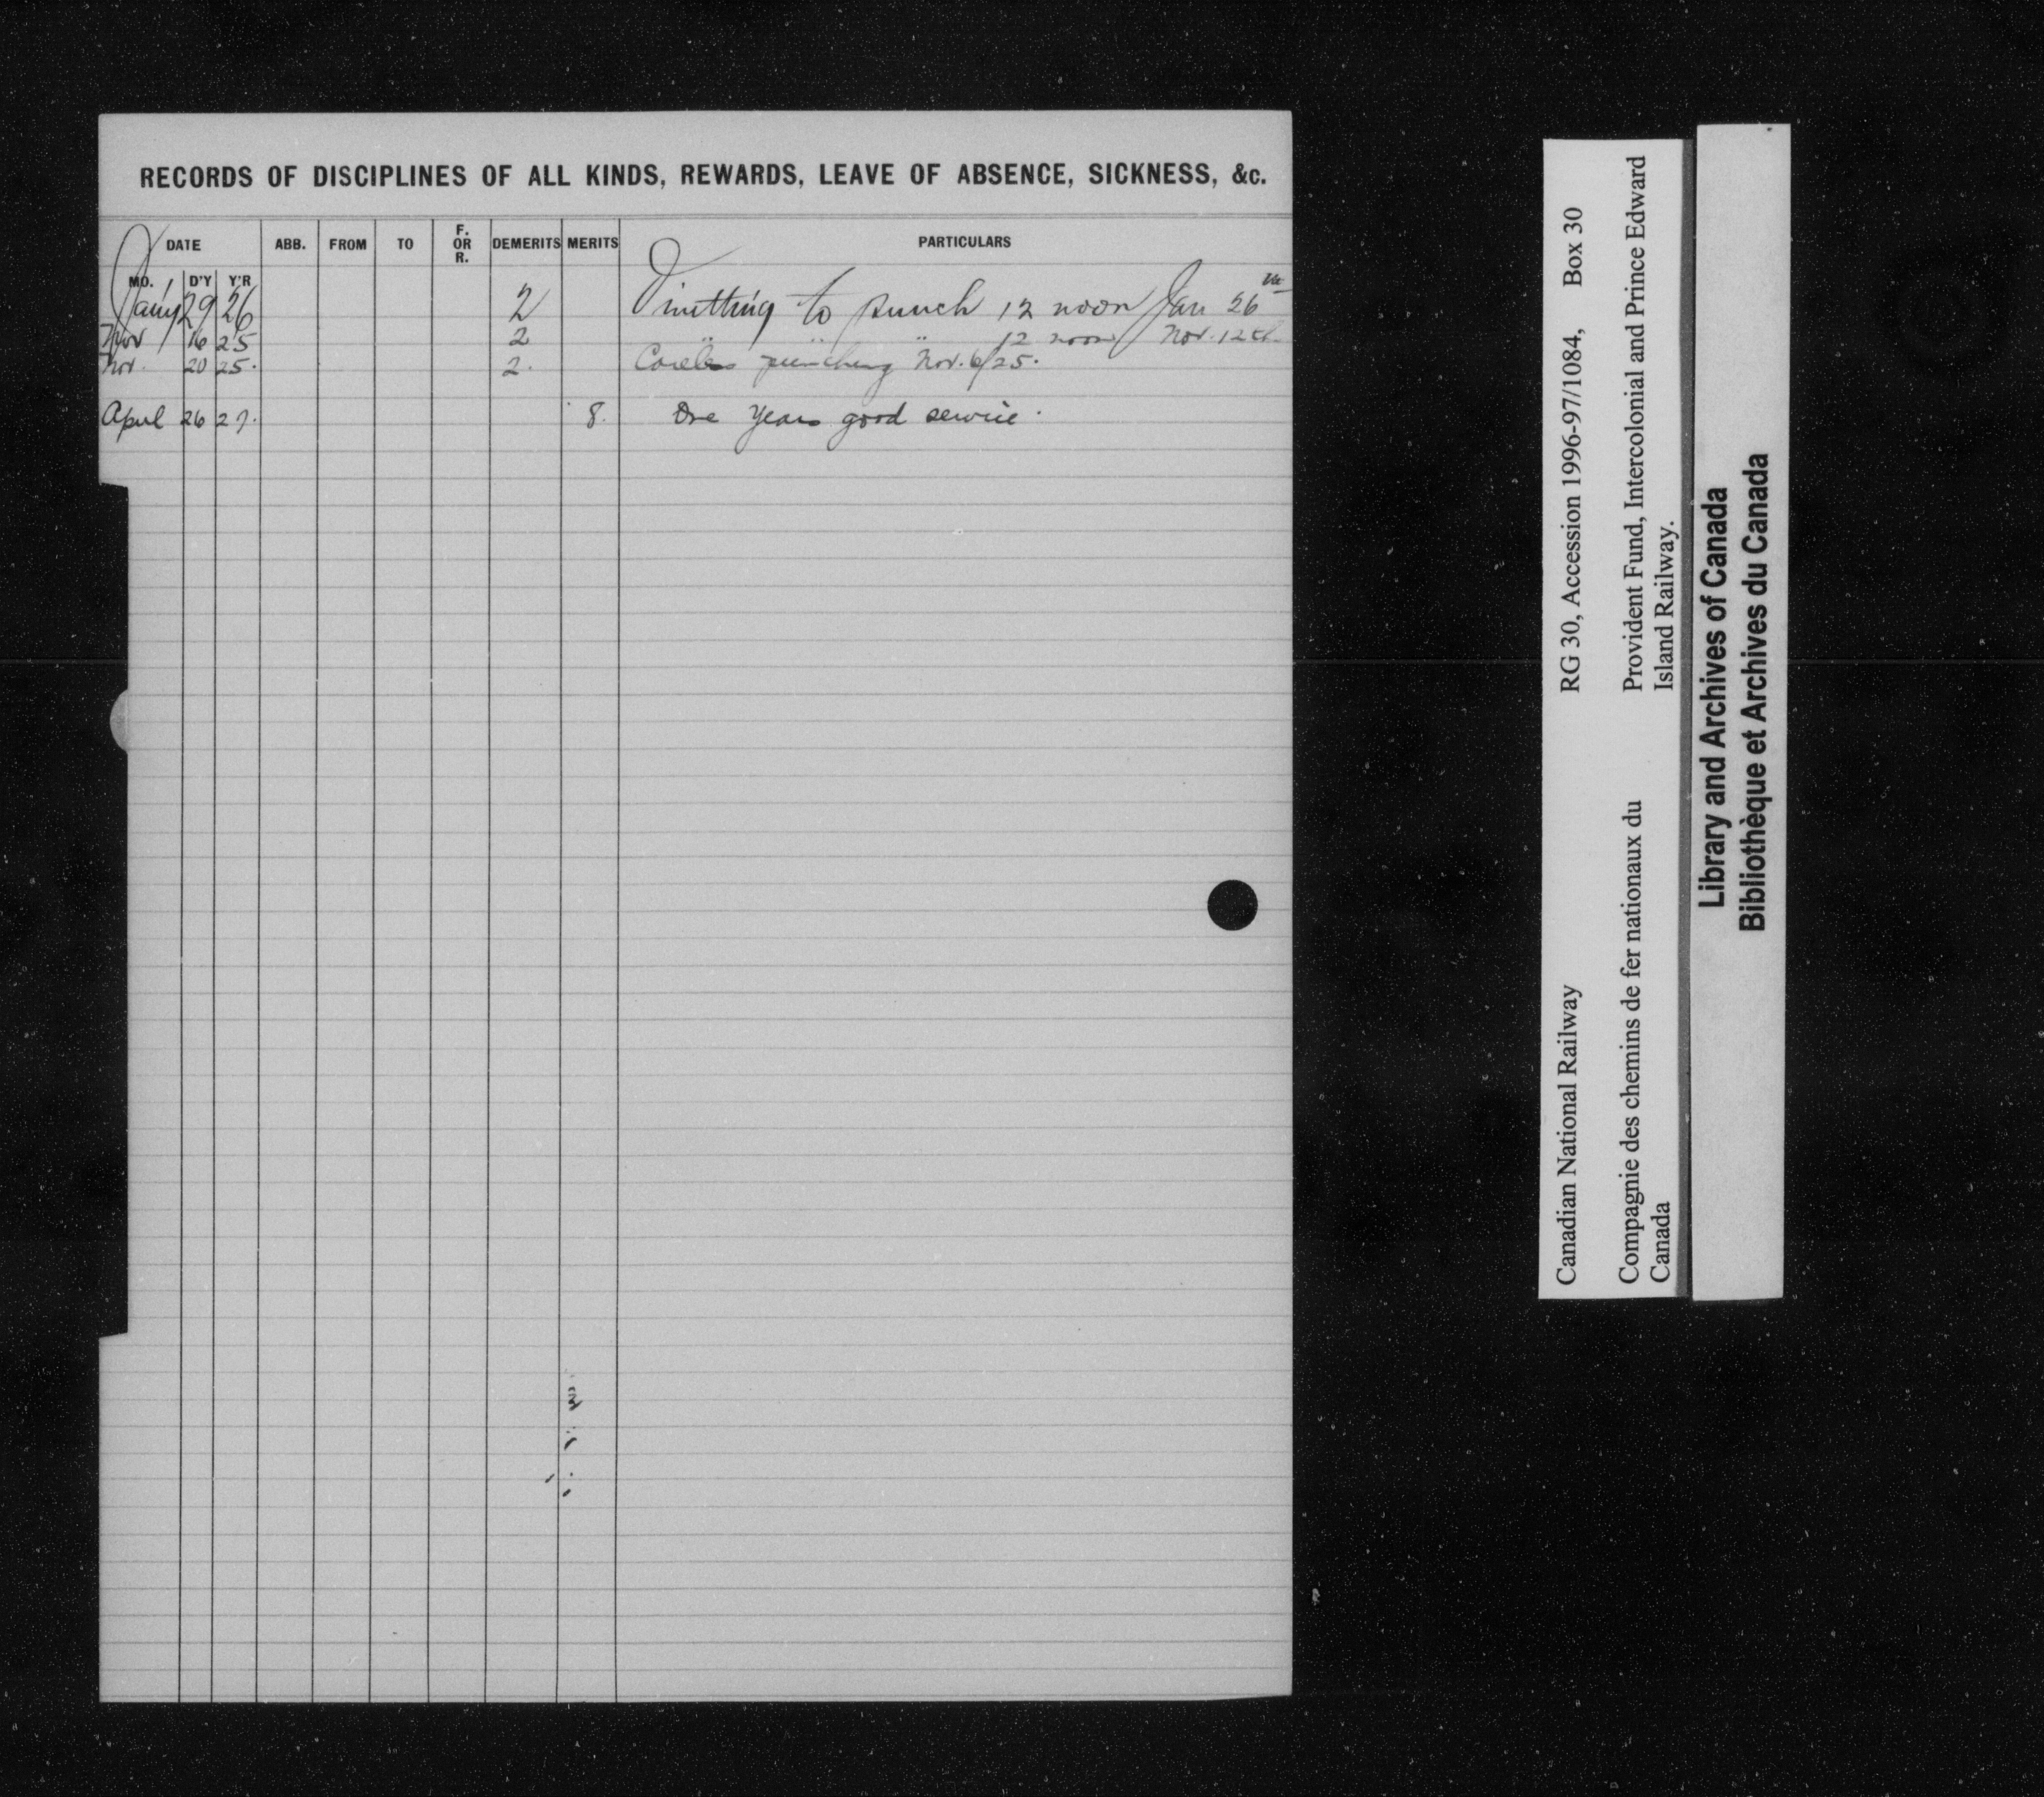 RECORDS OF DISCIPLINES OF ALL KINDS, REWARDS, LEAVE OF ABSENCE, SICKNESS, &c.
DATE ABB. FROM TO F. OR R. DEMERITS MERITS PARTICULARS
MO. D'Y Y'R
Jany 29 26 2 Omitting to Punch 12 noon Jan 26th
Nov 16 25 2 " " " 12 noon Nov. 12th
Nov. 20 25. 2. Careless punching Nov. 6/25.
April 26 27. 8. One Years good service.
Canadian National Railway RG 30, Accession 1996-97/1084, Box 30
Compagnie des chemins de fer nationaux du Canada
Provident Fund, Intercolonial and Prince Edward Island Railway.
Library and Archives of Canada
Bibliothèque et Archives du Canada